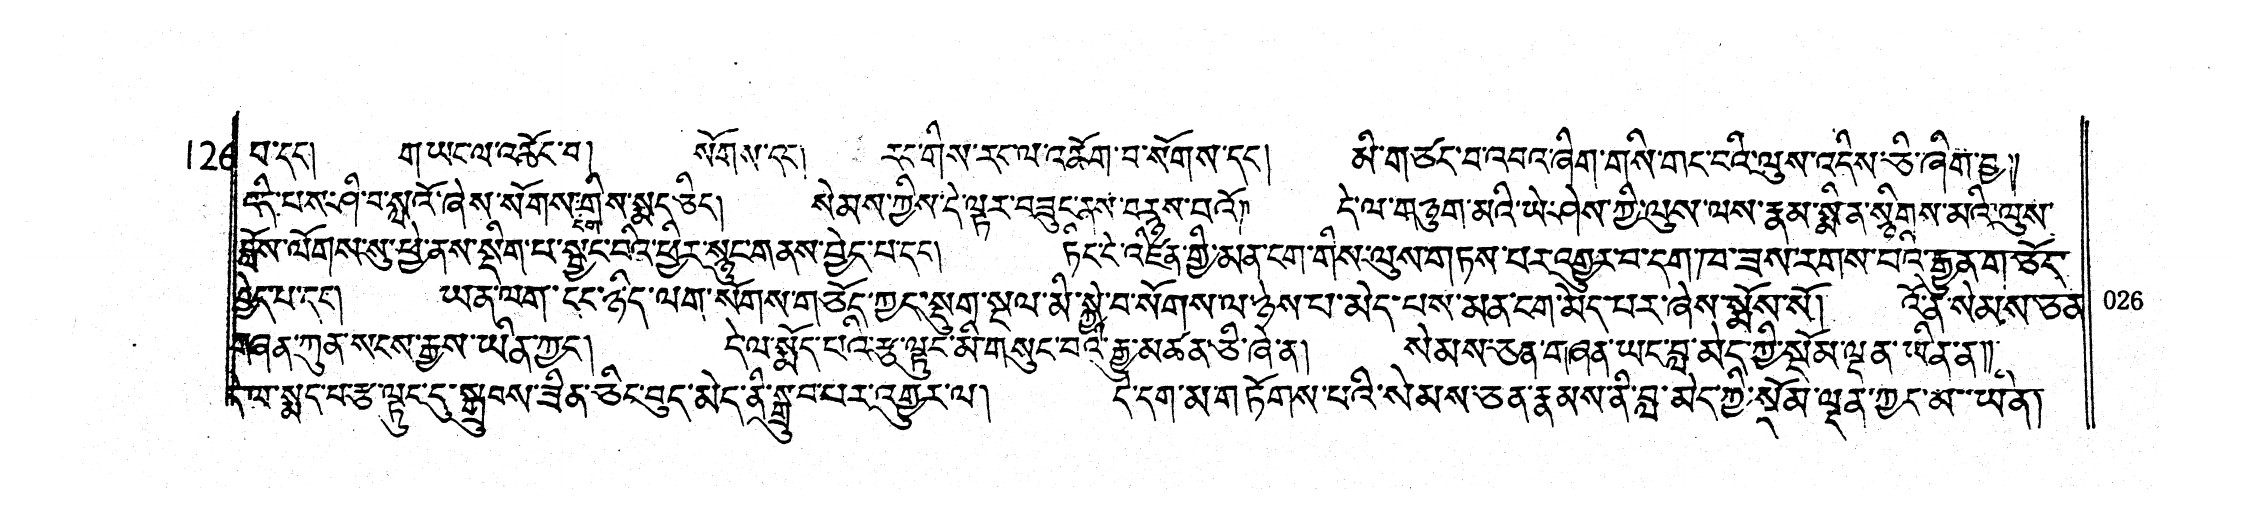 126 བ་དང། ག་ཡང་ལ་འཚོང་བ། སོགས་དང། རང་གིས་རང་ལ་འཚོག་བ་སོགས་དང། མི་གཙང་བ་འབའ་ཞིག་གསི་གང་ངའི་ལུས་འདིས་ཅི་ཞིག་བྱ༎
བདི་བས་ཤི་བ་སླའོ་ཞེས་སོགས་གྲིས་སྨད་ཅིང། སེམས་ཀྱིས་དེ་ལྟར་བཟུང་ནས་བརྙས་བའོ། དེ་ལ་གཉུག་མའི་ཡེ་ཤེས་ཀྱི་ལུས་ལས་རྣམ་སྨིན་སྙིགས་མའི་ལུས་
བློས་ལོགས་སུ་ཕྱེ་ནས་སྡིག་པ་སྦྱང་བའི་ཕྱིར་སྨྱུང་གནས་བྱེད་པ་དང། ཏིང་ངེ་འཛིན་གྱི་མན་ངག་གིས་ལུས་གཏས་པར་འགྱུར་བ་དག།བ་ཟས་རགས་པའི་རྒྱུན་གཅོད་
བྱེད་པ་དང། ཡན་ལག་དང་ཉིད་ལག་སོགས་གཅོད་ཀྱང་སྡུག་སྔལ་མི་སྐྱེ་བ་སོགས་ལ་ཉེས་པ་མེད་པས་མན་ངག་མེད་པར་ཞེས་སྨོས་སོ། འོ་ན་སེམས་ཅན་ 026
གཞན་ཀུན་སངས་རྒྱས་ཡིན་ཀྱང། དེ་ལ་སྨོད་པའི་རྩ་ལྟུང་མི་གསུང་བའི་རྒྱུ་མཚན་ཅི་ཞེ་ན། སེམས་ཅན་གཞན་ཡང་བླ་མེད་ཀྱི་སྡོམ་ལྡན་ཡིན་ན༎
དེ་ལ་སྨད་པ་རྩ་ལྟུང་དུ་སྐབས་ཟིན་ཅིང་བུད་མེད་ནི་སྒྲུབ་པར་འགྱུར་ལ། དེ་དག་མ་གཏོགས་པའི་སེམས་ཅན་རྣམས་ནི་བླ་མེད་ཀྱི་སྡོམ་ལྡན་ཀྱང་མ་ཡིན།